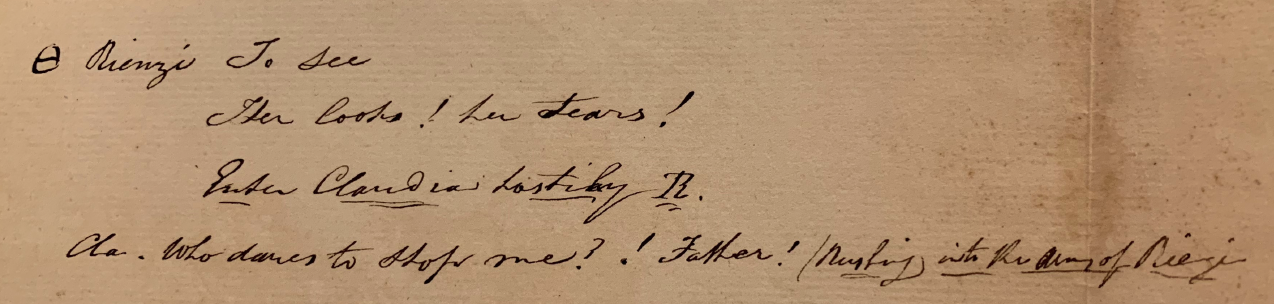 Θ Rienzi To see
Her looks! her tears!
Enter Claudia hastily R.
Cla. Who dares to stop me?! Father! (Rushing into the arms of Rienzi